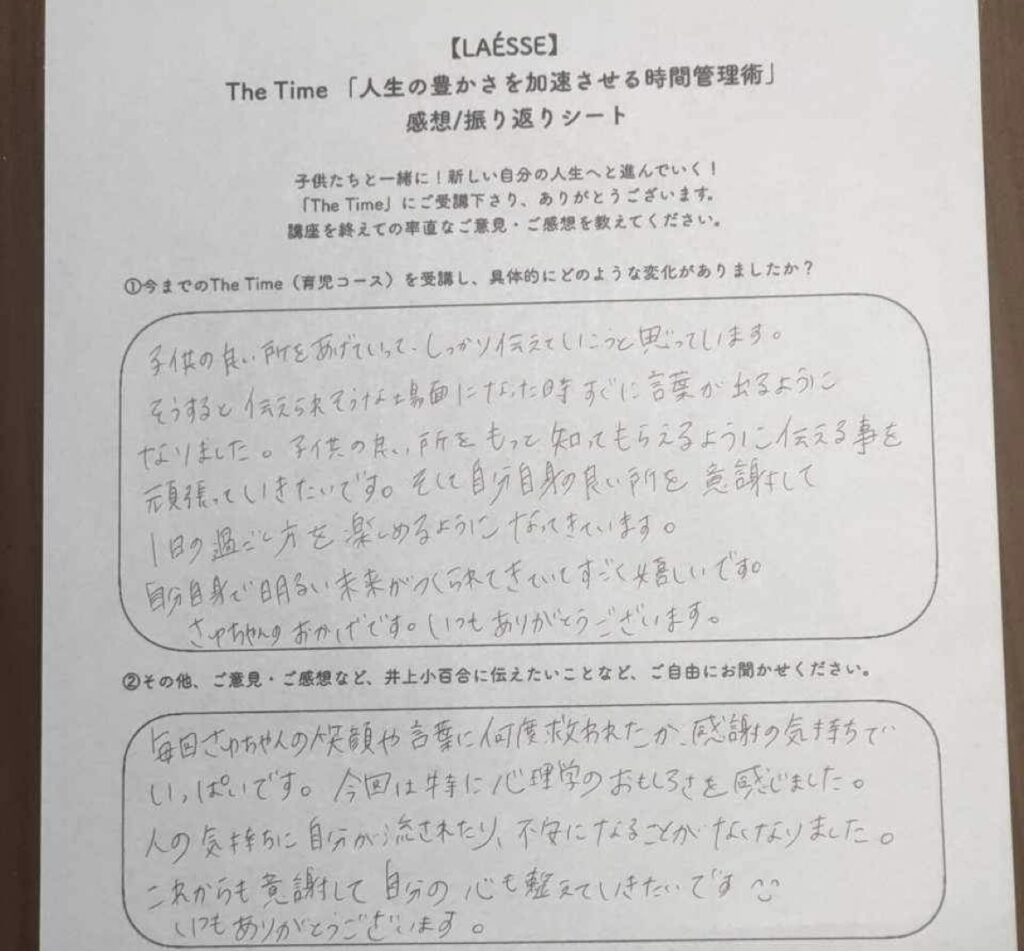 【LAÉSSE】
The Time 「人生の豊かさを加速させる時間管理術」
感想/振り返りシート
子供たちと一緒に！新しい自分の人生へと進んでいく！
「The Time」にご受講下さり、ありがとうございます。
講座を終えての率直なご意見・ご感想を教えてください。
①今までのThe Time（育児コース）を受講し、具体的にどのような変化がありましたか？
子供の良い所をあげていって、しっかり伝えていこうと思っています。
そうすると伝えられそうな場面になった時すぐに言葉が出るように
なりました。子供の良い所をもっと知ってもらえるように伝える事を
頑張っていきたいです。そして自分自身の良い所を意識して
1日の過ごし方を楽しめるようになってきています。
自分自身で明るい未来がつくられてきていてすごく嬉しいです。
さゆちゃんのおかげです。いつもありがとうございます。
②その他、ご意見・ご感想など、井上小百合に伝えたいことなど、ご自由にお聞かせください。
毎回さゆちゃんの笑顔や言葉に何度救われたか、感謝の気持ちで
いっぱいです。今回は特に心理学のおもしろさを感じました。
人の気持ちに自分が流されたり、不安になることがなくなりました。
これからも意識して自分の心も整えていきたいです
いつもありがとうございます。